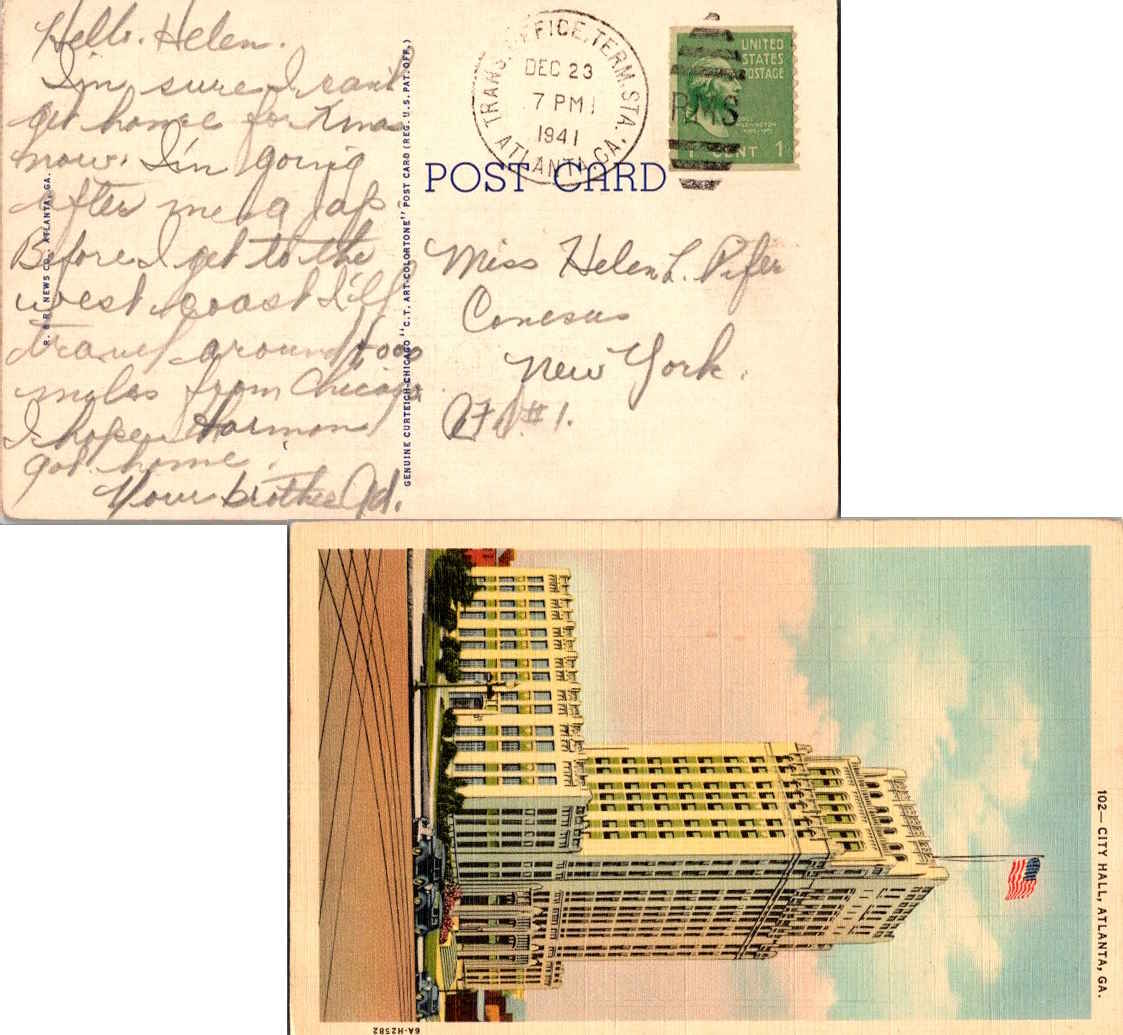 Hello. Helen.
I'm sure I can't
get home for Xmas
now. I'm going
after me a Jap.
Before I get to the
west coast I'll
travel around 4000
miles from Chicago.
I hope Harmon
got home.
Your brother Ed.
R. & R. NEWS CO., ATLANTA, GA.
GENUINE CURTEICH-CHICAGO "C.T. ART-COLORTONE" POST CARD (REG. U.S. PAT. OFF.)
TRANS. OFFICE, TERM. STA.
DEC 23
7 PM
1941
ATLANTA, GA.
RMS
UNITED
STATES
POSTAGE
WASHINGTON
1 CENT 1
POST CARD
Miss Helen L. Pifer
Conesus
New York.
R.F.D. #1.
102— CITY HALL, ATLANTA, GA.
6A-H2582